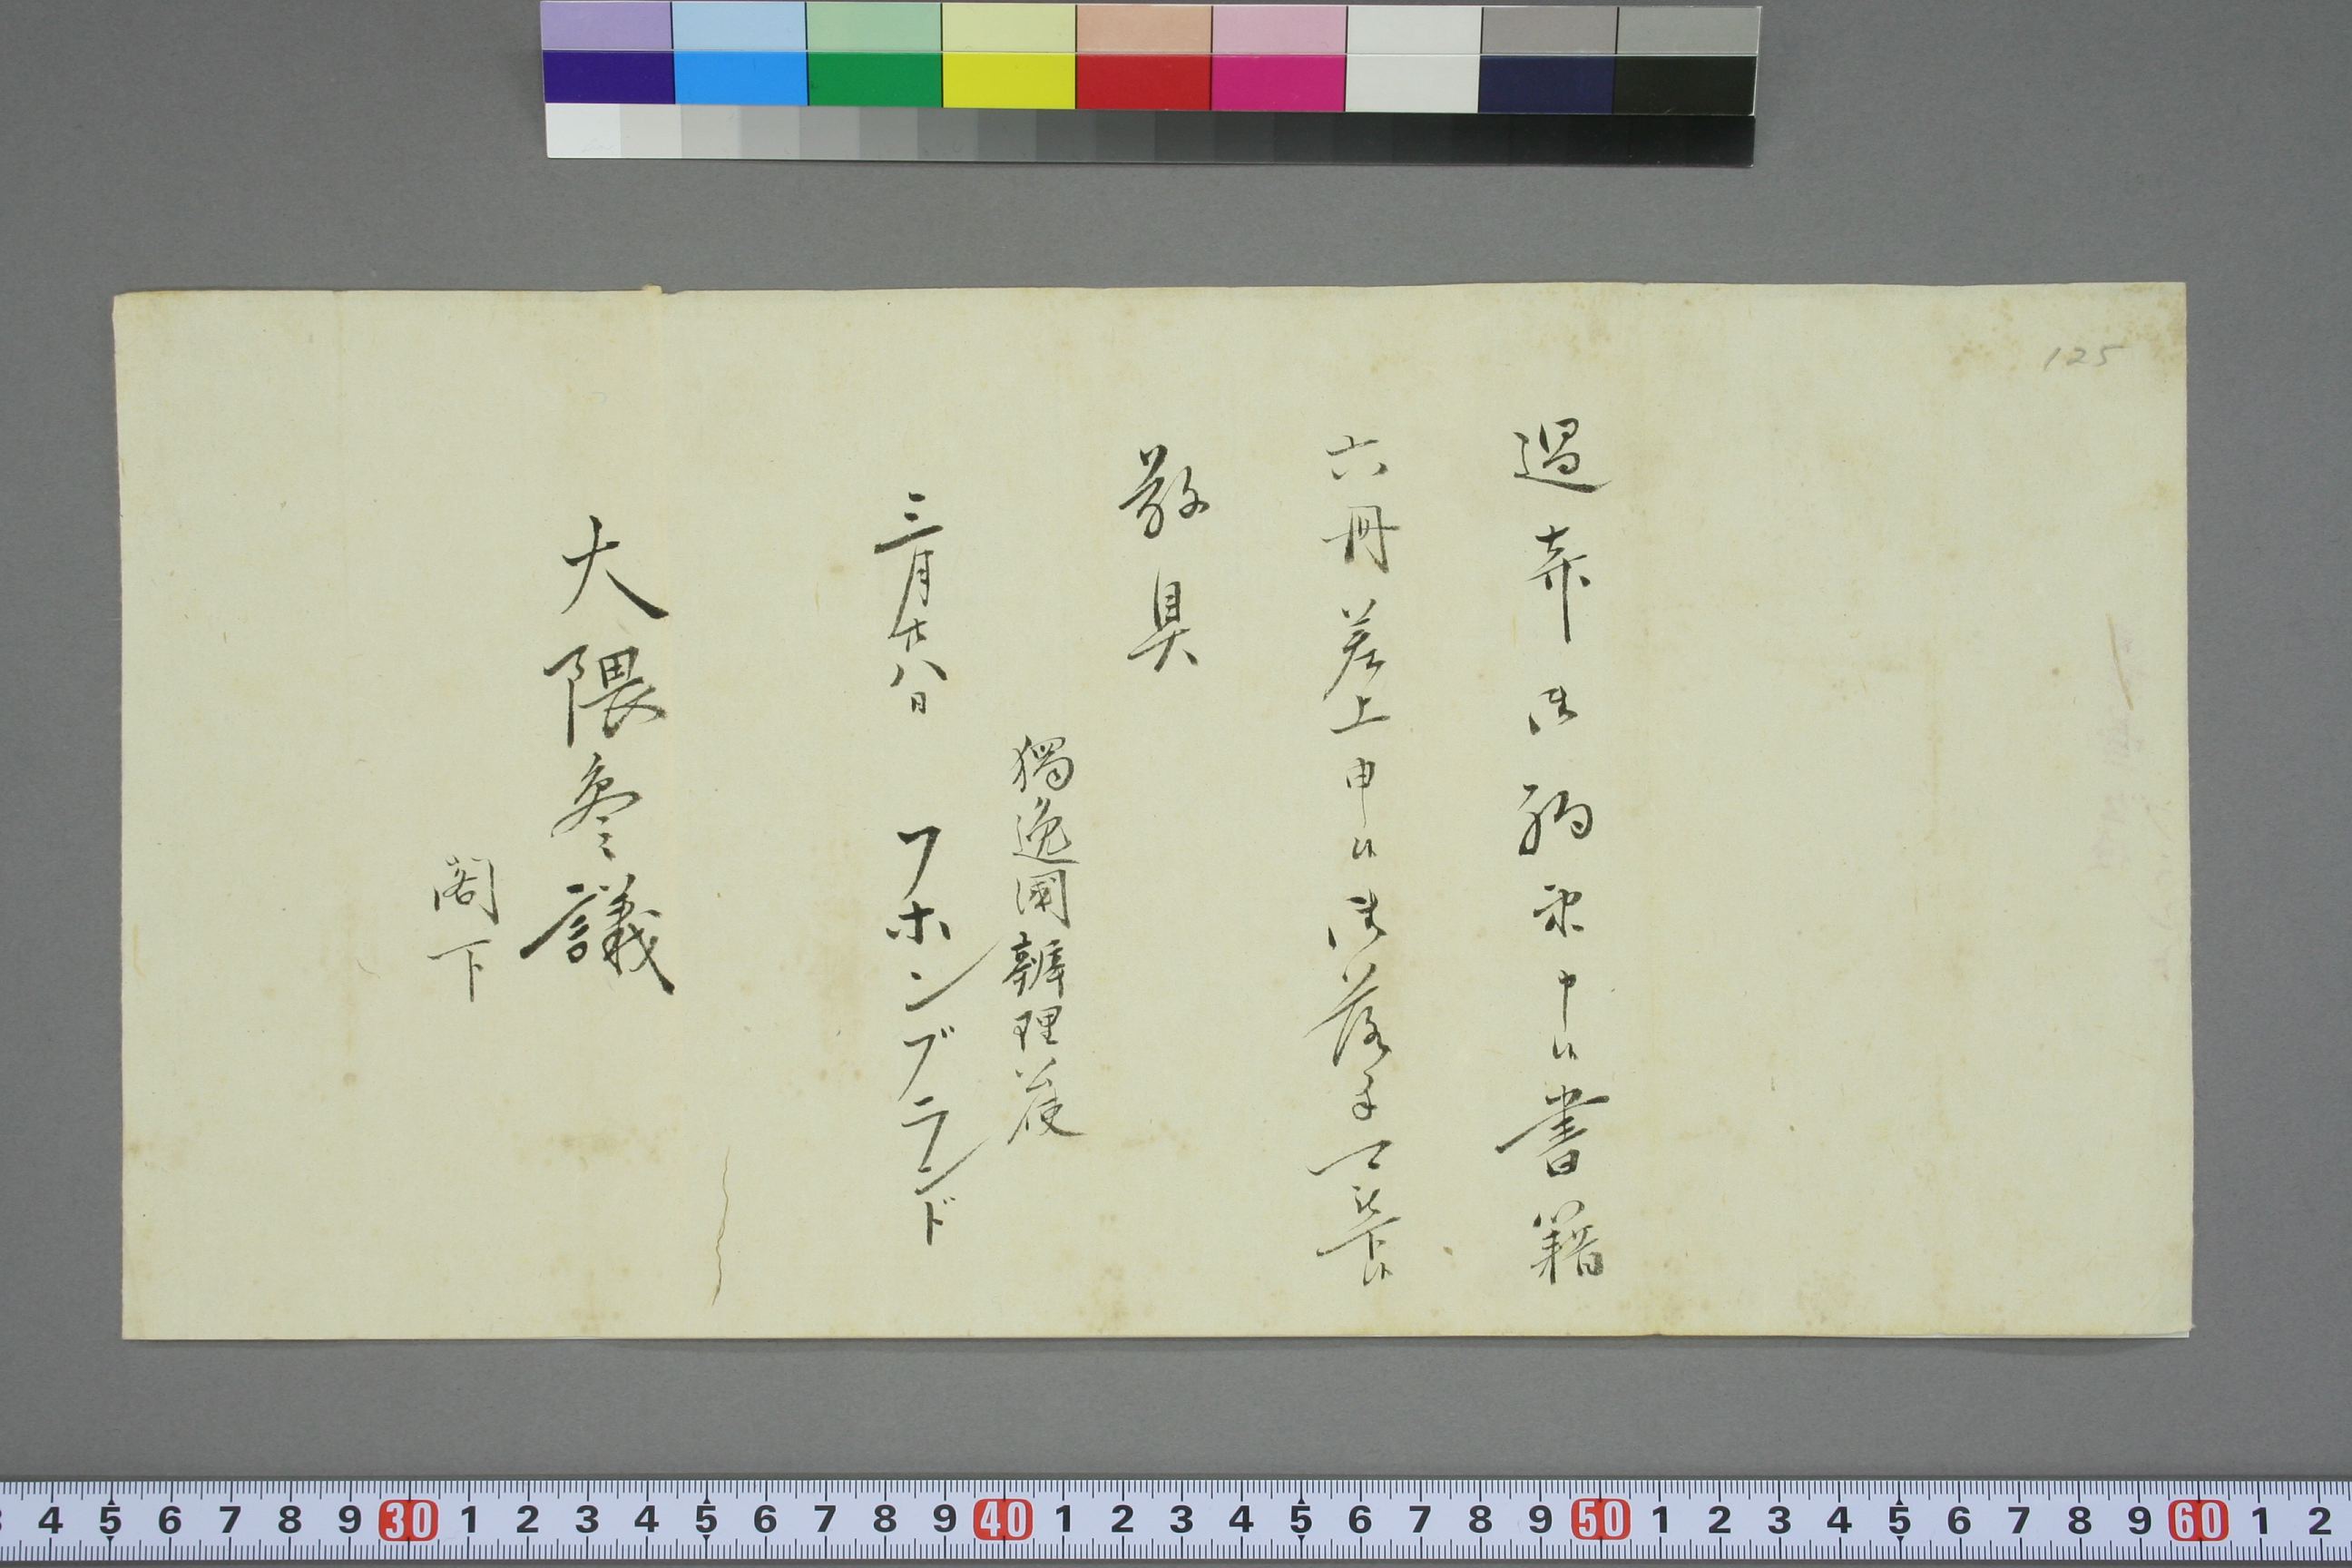 125
過斉御約束申候書籍
六冊差上申候御落手可被下候
敬具
三月廿八日
獨逸國辨理公使
フホンブランド
大隈参議
閣下
3 4 5 6 7 8 9 30 1 2 3 4 5 6 7 8 9 40 1 2 3 4 5 6 7 8 9 50 1 2 3 4 5 6 7 8 9 60 1 2